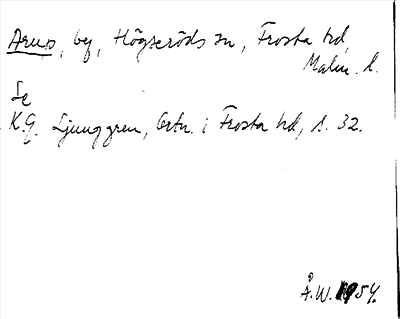 Arup, by, Högseröds sn, Frosta hd,
Malm. l.
Se
K.G. Ljunggren, Ortn. i Frosta hd, s. 32.
Å.W. 1954.